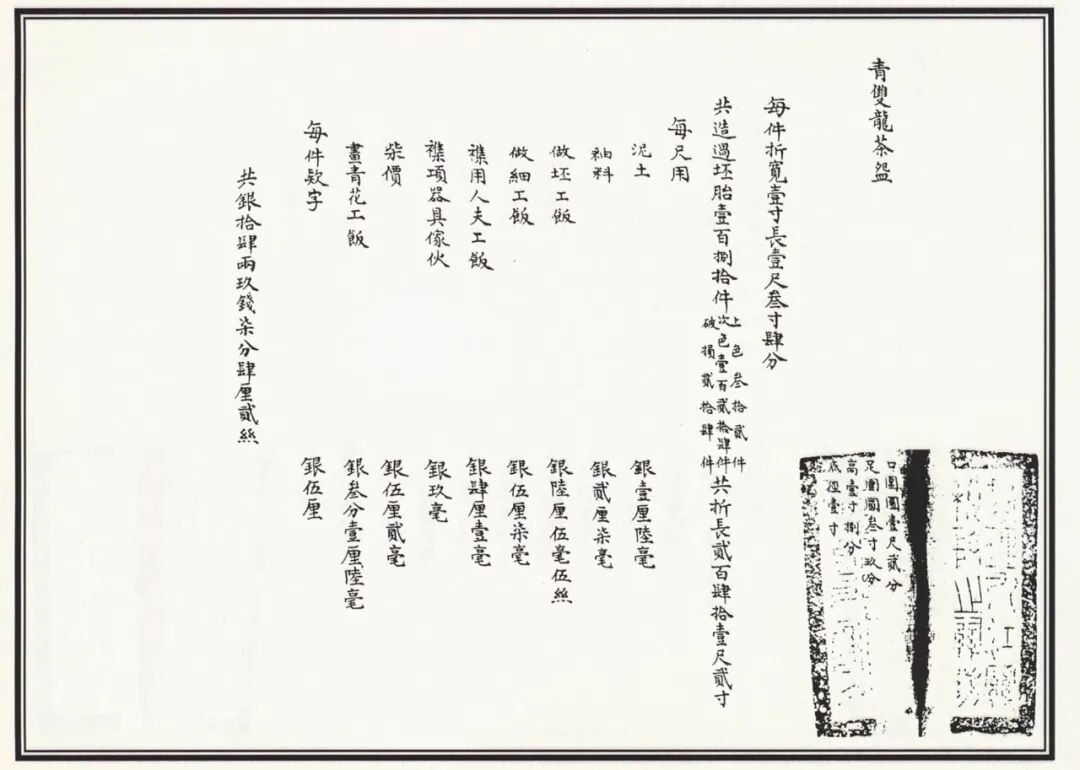 青雙龍茶盌
口圍圓壹尺貳分
足圍圓叁寸玖分
高壹寸捌分
底徑壹寸
每件折寬壹寸長壹尺叁寸肆分
共造過坯胎壹百捌拾件
上色叁拾貳件
次色壹百貳拾肆件
破損貳拾肆件
共折長貳百肆拾壹尺貳寸
每尺用
泥土 銀壹厘陸毫
秞料 銀貳厘柒毫
做坯工飯 銀陸厘伍毫伍絲
做細工飯 銀伍厘柒毫
襍用人夫工飯 銀肆厘壹毫
襍項器具傢伙 銀玖毫
柴價 銀伍厘貳毫
畫青花工飯 銀叁分壹厘陸毫
每件欵字 銀伍厘
共銀拾肆兩玖錢柒分肆厘貳絲